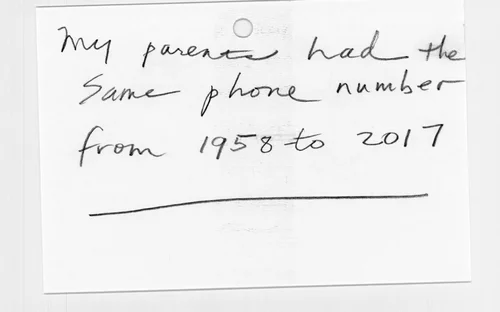 My parents had the
same phone number
from 1958 to 2017